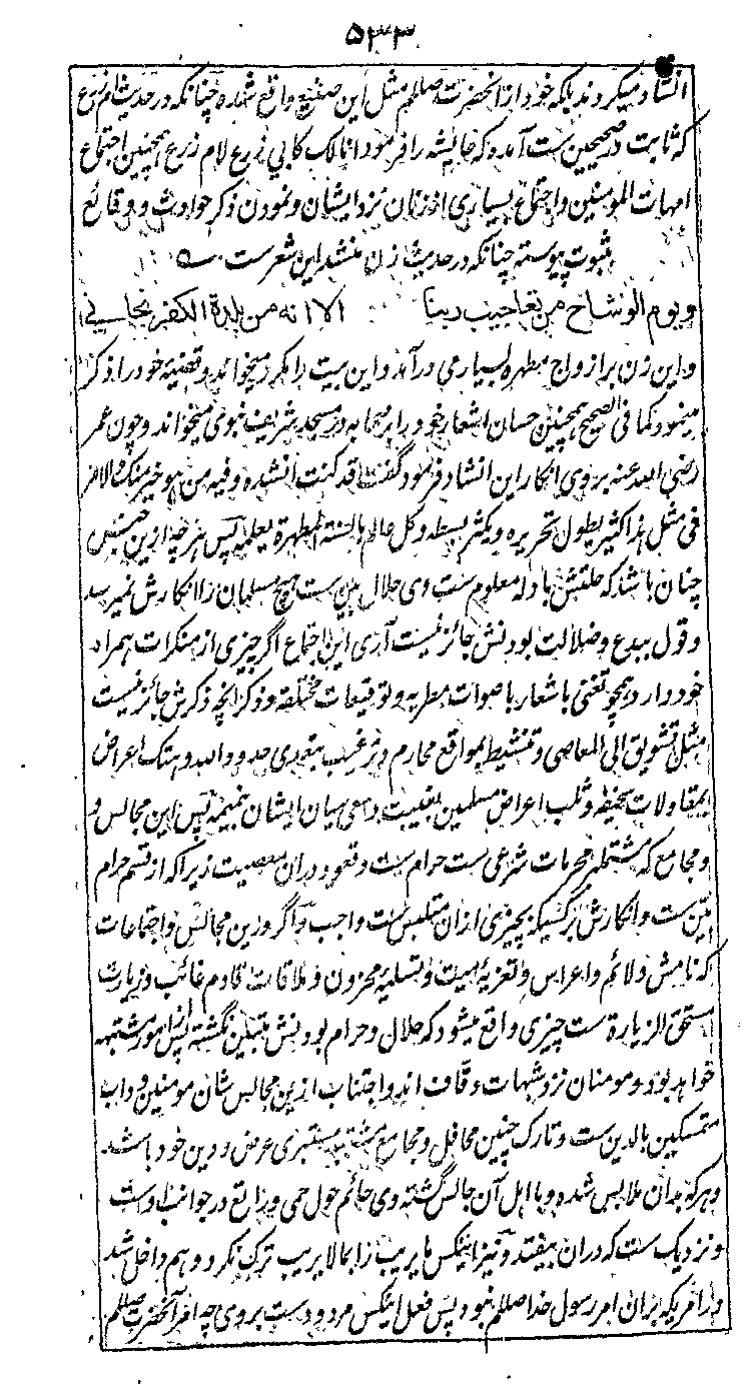 ۵۳۳
انشاد میکردند بلکه خود از آنحضرت صللم مثل این صنیع واقع شده چنانکه در حدیث ام زرع
که ثابت در صحیحین ست آمده که عایشه را فرمود انا لک کابی زرع لام زرع همچنین اجتماع
امهات المومنین و اجتماع بسیاری از زنان نزد ایشان و نمودن ذکر حوادث و وقائع
بثبوت پیوسته چنانکه در حدیث زن منشد این شعرست
ویوم الوشاح من تعاجیب ربنا الا انه من بلدة الکفر نجانی
و این زن بر ازواج مطهره بسیار می درآمد و این بیت را مکرر میخواند و قضیه خود را ذکر
مینمود کما فی الصحیح همچنین حسان اشعار خود را بر صحابه در مسجد شریف نبوی میخواند و چون عمر
رضی الله عنه بروی انکار این انشاد فرمود گفت قد کنت انشده وفیه من هو خیر منک والامر
فی مثل هذا کثیر یطول تحریره ویکثر بسطه وکل عالم بالسنة المطهرة یعلمه پس هر چه ازین جنس
چنان باشد که حلتش بادله معلوم ست وی حلال بین ست هیچ مسلمان را انکارش نمیرسد
و قول ببدع و ضلالت بودنش جائز نیست آری این اجتماع اگر چیزی از منکرات همراه
خود دارد همچو تغنی باشعار باصوات مطربه و توقیعات مختلفه و ذکر آنچه ذکرش جائز نیست
مثل تشویق الی المعاصی و تنشیط بمواقع محارم و ترغیب بتعدی حدود الله و هتک اعراض
بمقاولات سخیفه و ثلب اعراض مسلمین بغیبت و سعی میان ایشان بنمیمه پس این مجالس و
و مجامع که مشتمل بر محرمات شرعی ست حرام ست و قعود دران معصیت زیرا که از قسم حرام
بین ست و انکارش بر کسیکه بچیزی ازان متلبس ست واجب و اگر درین مجالس و اجتماعات
که نامش ولائم و اعراس و تعزیه میت و تسلیه محزون و ملاقات قادم غائب و زیارت
مستحق الزیارة ست چیزی واقع میشود که حلال و حرام بودنش متبین نگشته پس از امور مشتبه
خواهد بود و مومنان نزد شبهات وقاف اند و اجتناب ازین مجالس شان مومنین و داب
متمسکین بالدین ست و تارک چنین محافل و مجامع مشتبه مستبری عرض و دین خود باشد
و هر که بدان ملابس شده و با اهل آن جالس گشته وی حائم حول حمی و راتع در جوانب اوست
و نزدیک ست که دران بیفتد و نیز اینکس ما یریب را بما لا یریب ترک نکرد و هم داخل شد
در امریکه بران امر رسول خدا صللم نبود پس فعل اینکس مردود ست بروی چه امر آنحضرت صللم